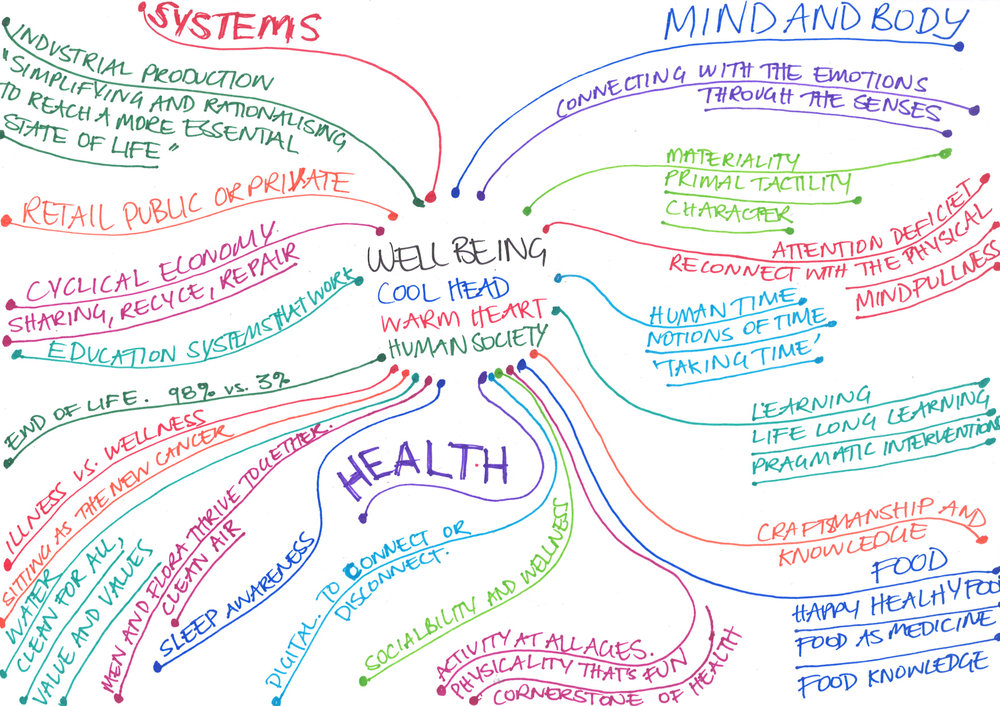 SYSTEMS
INDUSTRIAL PRODUCTION
"SIMPLIFYING AND RATIONALISING
TO REACH A MORE ESSENTIAL
STATE OF LIFE"
RETAIL PUBLIC OR PRIVATE
CYCLICAL ECONOMY.
SHARING, RECYCE, REPAIR
EDUCATION SYSTEMS THAT WORK
END OF LIFE. 98% vs. 3%
ILLNESS VS. WELLNESS
SITTING AS THE NEW CANCER
WATER
CLEAN FOR ALL,
VALUE AND VALUES
MEN AND FLORA THRIVE TOGETHER.
CLEAN AIR
SLEEP AWARENESS
WELL BEING
COOL HEAD
WARM HEART
HUMAN SOCIETY
HEALTH
DIGITAL. TO CONNECT OR
DISCONNECT.
SOCIALBILITY AND WELLNESS
ACTIVITY AT ALL AGES.
PHYSICALITY THAT'S FUN
CORNERSTONE OF HEALTH
MIND AND BODY
CONNECTING WITH THE EMOTIONS
THROUGH THE SENSES
MATERIALITY
PRIMAL TACTILITY
CHARACTER
ATTENTION DEFICIET
RECONNECT WITH THE PHYSICAL
MINDFULLNESS
HUMAN TIME
NOTIONS OF TIME
'TAKING TIME'
LEARNING
LIFE LONG LEARNING
PRAGMATIC INTERVENTIONS
CRAFTSMANSHIP AND
KNOWLEDGE
FOOD
HAPPY HEALHY FOOD
FOOD AS MEDICINE
FOOD KNOWLEDGE